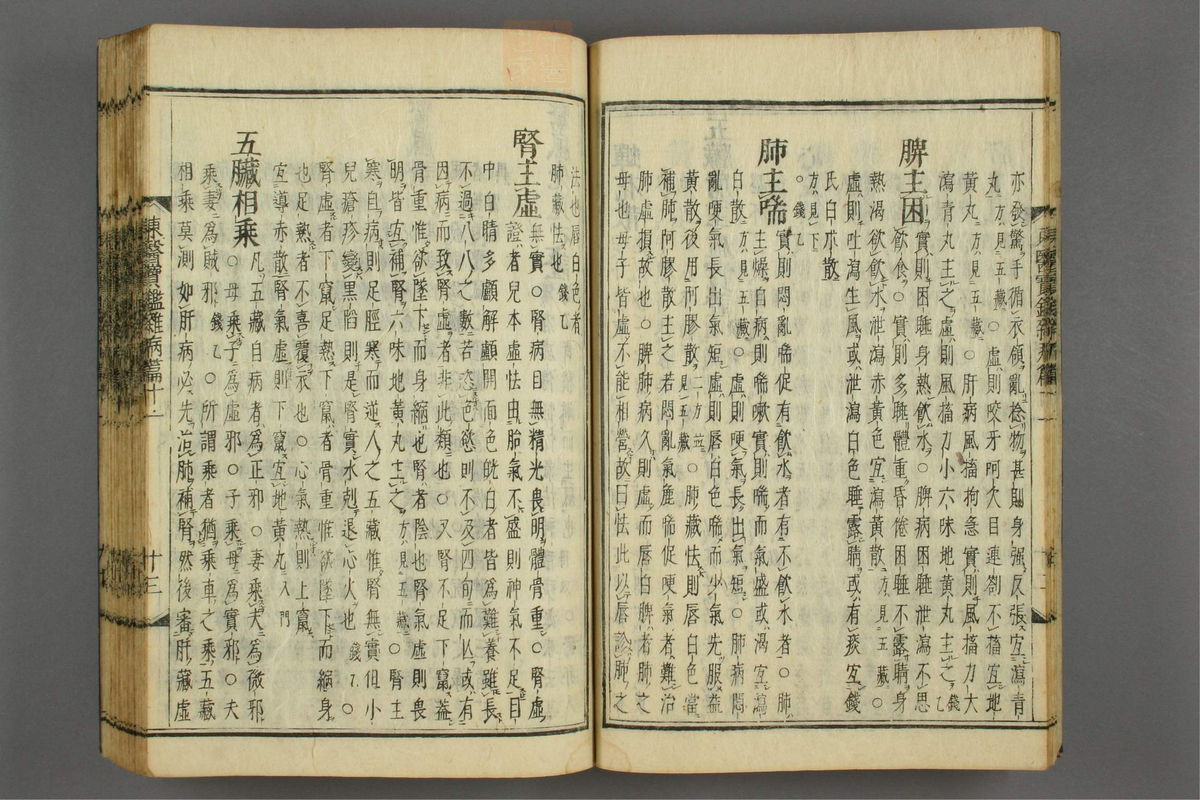 亦發驚手循衣領亂捻物甚則身强反張宜瀉靑
丸方見五藏○虛則咬牙呵欠目連劄不搐宜地
黃丸方見五藏○肝病風搐拘急實則風搐力大
瀉靑丸主之虛則風搐力小六味地黃丸主之錢乙
脾主困
實則困睡身熱飮水○脾病困睡泄瀉不思
飮食○實則多睡體重昏倦困睡不露睛身
熱渴欲飮水泄瀉赤黃色宜瀉黃散方見五藏○
虛則吐瀉生風或泄瀉白色睡露睛或有痰宜錢
氏白朮散方見下○錢乙
肺主喘
實則悶亂喘促有飮水者有不飮水者○肺
主燥自病則喘嗽實則喘而氣盛或渴宜瀉
白散方見五藏○虛則哽氣長出氣短○肺病悶
亂哽氣長出氣短虛則唇白色喘而少氣先服益
黃散後用阿膠散二方並見五藏○肺藏怯則唇白色當
補肺阿膠散主之若悶亂氣麁喘促哽氣者難治
肺虛損故也○脾肺病久則虛而唇白脾者肺之
母也母子皆虛不能相營故曰怯此以唇診肺之
法也唇白色者
肺藏怯也錢乙
腎主虛
無實○腎病目無精光畏明體骨重○腎虛
證者兒本虛怯由胎氣不盛則神氣不足目
中白睛多顱解顱開面色㿠白者皆爲難養雖長
不過八八之數若恣色慾則不及四旬而亾或有
因病而致腎虛者非此類也○又腎不足下竄蓋
骨重惟欲墜下而身縮也腎者陰也腎氣虛則畏
明皆宜補腎六味地黃丸主之方見五藏○腎主
寒自病則足脛寒而逆人之五藏惟腎無實但小
兒瘡疹變黑陷則是腎實水剋退心火也錢乙○
腎虛者下竄足熱下竄者骨重惟欲墜下而縮身
也足熱者不喜覆衣也○心氣熱則上竄
宜導赤散腎氣虛則下竄宜地黃丸入門
五臟相乘
凡五藏自病者爲正邪○妻乘夫爲微邪
○母乘子爲虛邪○子乘母爲實邪○夫
乘妻爲賊邪錢乙○所謂乘者猶乘車之乘五藏
相乘莫測如肝病必先治肺補腎然後審肝藏虛
東醫寶鑑雜病篇十一
十三